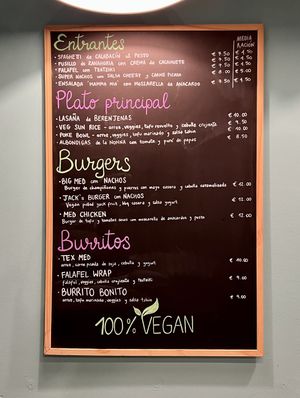 Entrantes
MEDIA
RACIÓN
• SPAGHETI DE CALABACÍN AL PESTO
• FUSILLO DE ZANAHORIA CON CREMA DE CACAHUETE
• FALAFEL CON TZATZIKI
• SUPER NACHOS CON SALSA CHEESY Y CARNE PICADA
• ENSALADA "MAMMA MIA" CON MOZZARELLA DE ANACARDO
Plato principal
• LASAÑA DE BERENJENAS € 10.00
• VEG SUN RICE - arroz, veggies, tofu revuelto y cebolla crujiente
• POKE BOWL - arroz, veggies, tofu marinado y salsa tahin
• ALBONDIGAS de la NONNA con tomate y puré de papas € 8.50
Burgers
• BIG MED con NACHOS € 12.00
Burger de champiñones y puerros con mayo casera y cebolla caramelizada
• JACK'S BURGER con NACHOS € 12.00
Vegan pulled jack fruit, bbq casera y salsa yogurt
• MED CHICKEN € 12.00
Burger de tofu y tomates secos con mozzarella de anacardos y pesto
Burritos
• TEX MED € 10.00
arroz, carne picada de soja, cebolla y yogurt
• FALAFEL WRAP € 9.00
falafel, veggies, cebolla crujiente y tzatziki
• BURRITO BONITO € 9.00
arroz, tofu marinado, veggies y salsa tahin
100% VEGAN